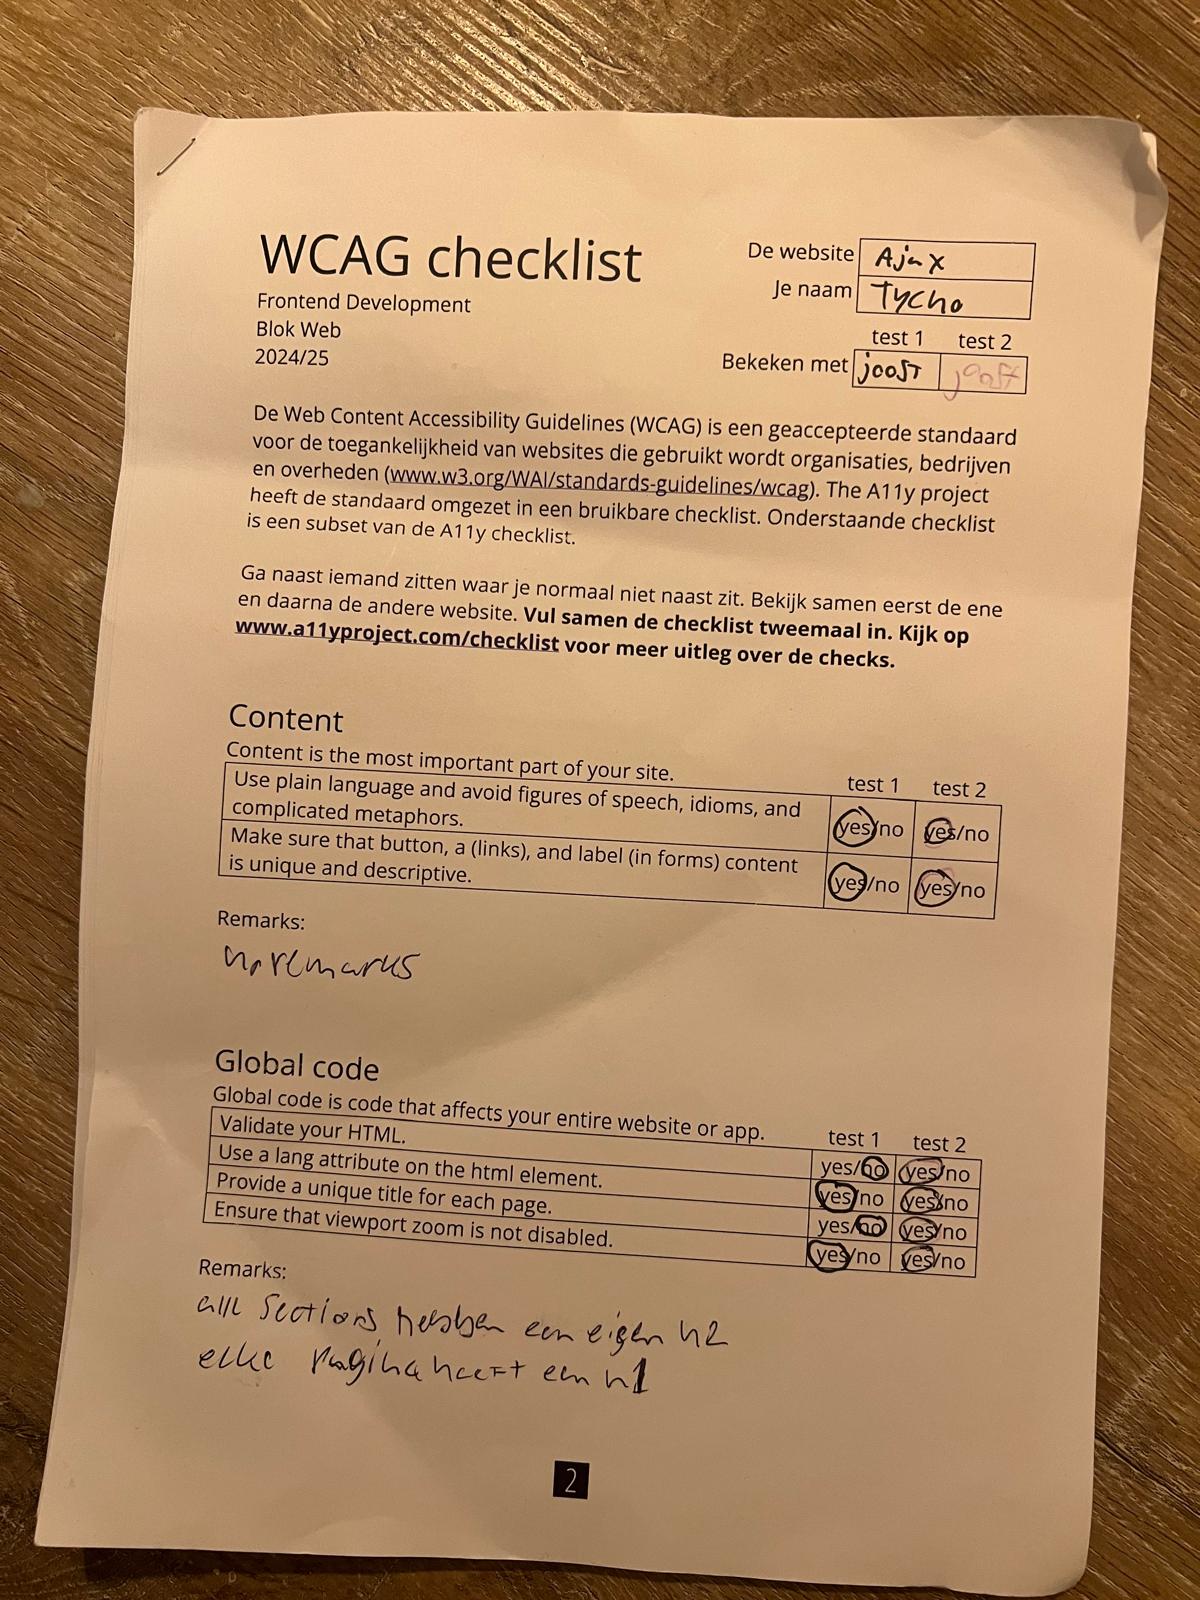 WCAG checklist
Frontend Development
Blok Web
2024/25
De website Ajax
Je naam Tycho
test 1 test 2
Bekeken met joost joost
De Web Content Accessibility Guidelines (WCAG) is een geaccepteerde standaard
voor de toegankelijkheid van websites die gebruikt wordt organisaties, bedrijven
en overheden (www.w3.org/WAI/standards-guidelines/wcag). The A11y project
heeft de standaard omgezet in een bruikbare checklist. Onderstaande checklist
is een subset van de A11y checklist.
Ga naast iemand zitten waar je normaal niet naast zit. Bekijk samen eerst de ene
en daarna de andere website. Vul samen de checklist tweemaal in. Kijk op
www.a11yproject.com/checklist voor meer uitleg over de checks.
Content
Content is the most important part of your site.
test 1 test 2
Use plain language and avoid figures of speech, idioms, and
complicated metaphors.
yes/no yes/no
Make sure that button, a (links), and label (in forms) content
is unique and descriptive.
yes/no yes/no
Remarks:
no remarks
Global code
Global code is code that affects your entire website or app.
test 1 test 2
Validate your HTML. yes/no yes/no
Use a lang attribute on the html element. yes/no yes/no
Provide a unique title for each page. yes/no yes/no
Ensure that viewport zoom is not disabled. yes/no yes/no
Remarks:
alle sections hebben een eigen h2
elke pagina heeft een h1
2